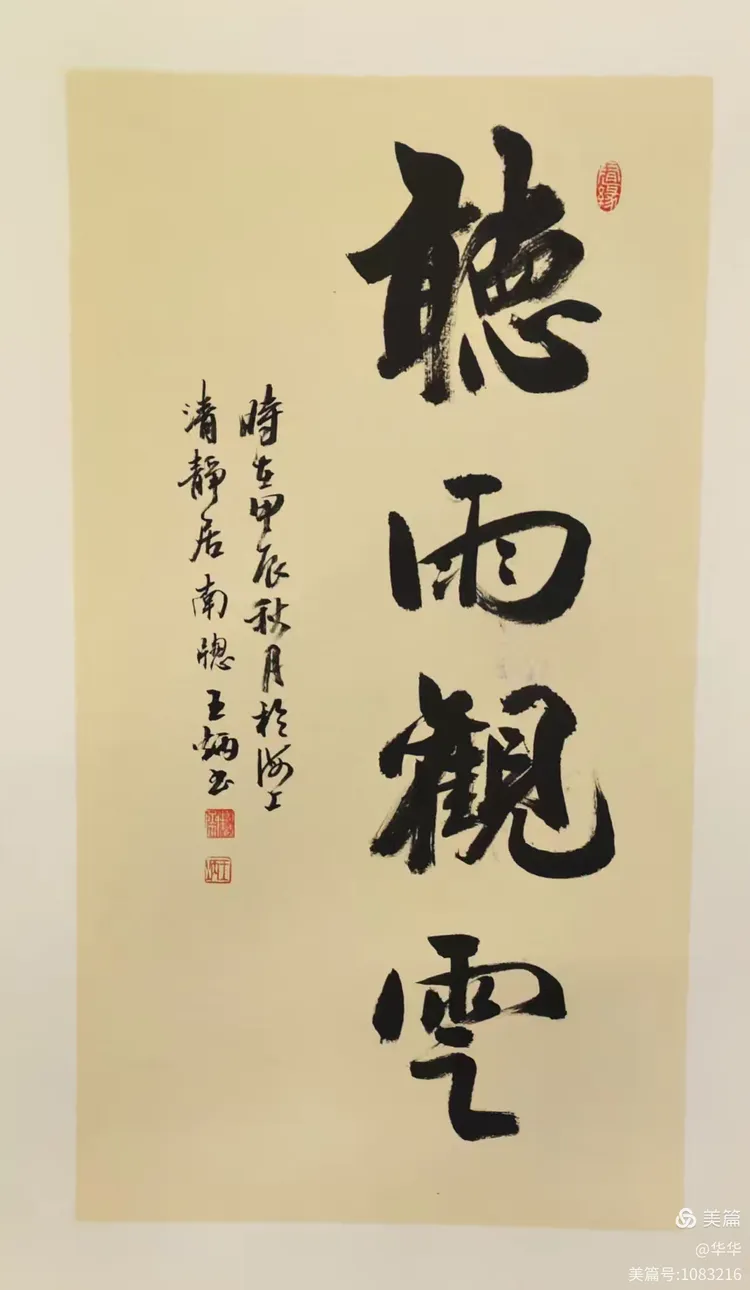 聽雨觀雲
時在甲辰秋月於海上
清靜居南牕王炳書
王炳
美篇
@华华
美篇号:1083216